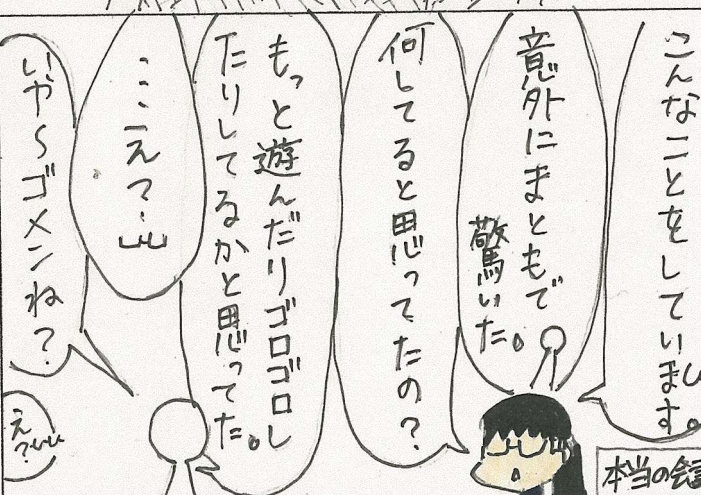 こんなことをしています。
意外にまともで
驚いた。
何してると思ってたの？
もっと遊んだりゴロゴロし
たりしてるかと思ってた。
…え？
いや～ゴメンね？
え？
本当の会話